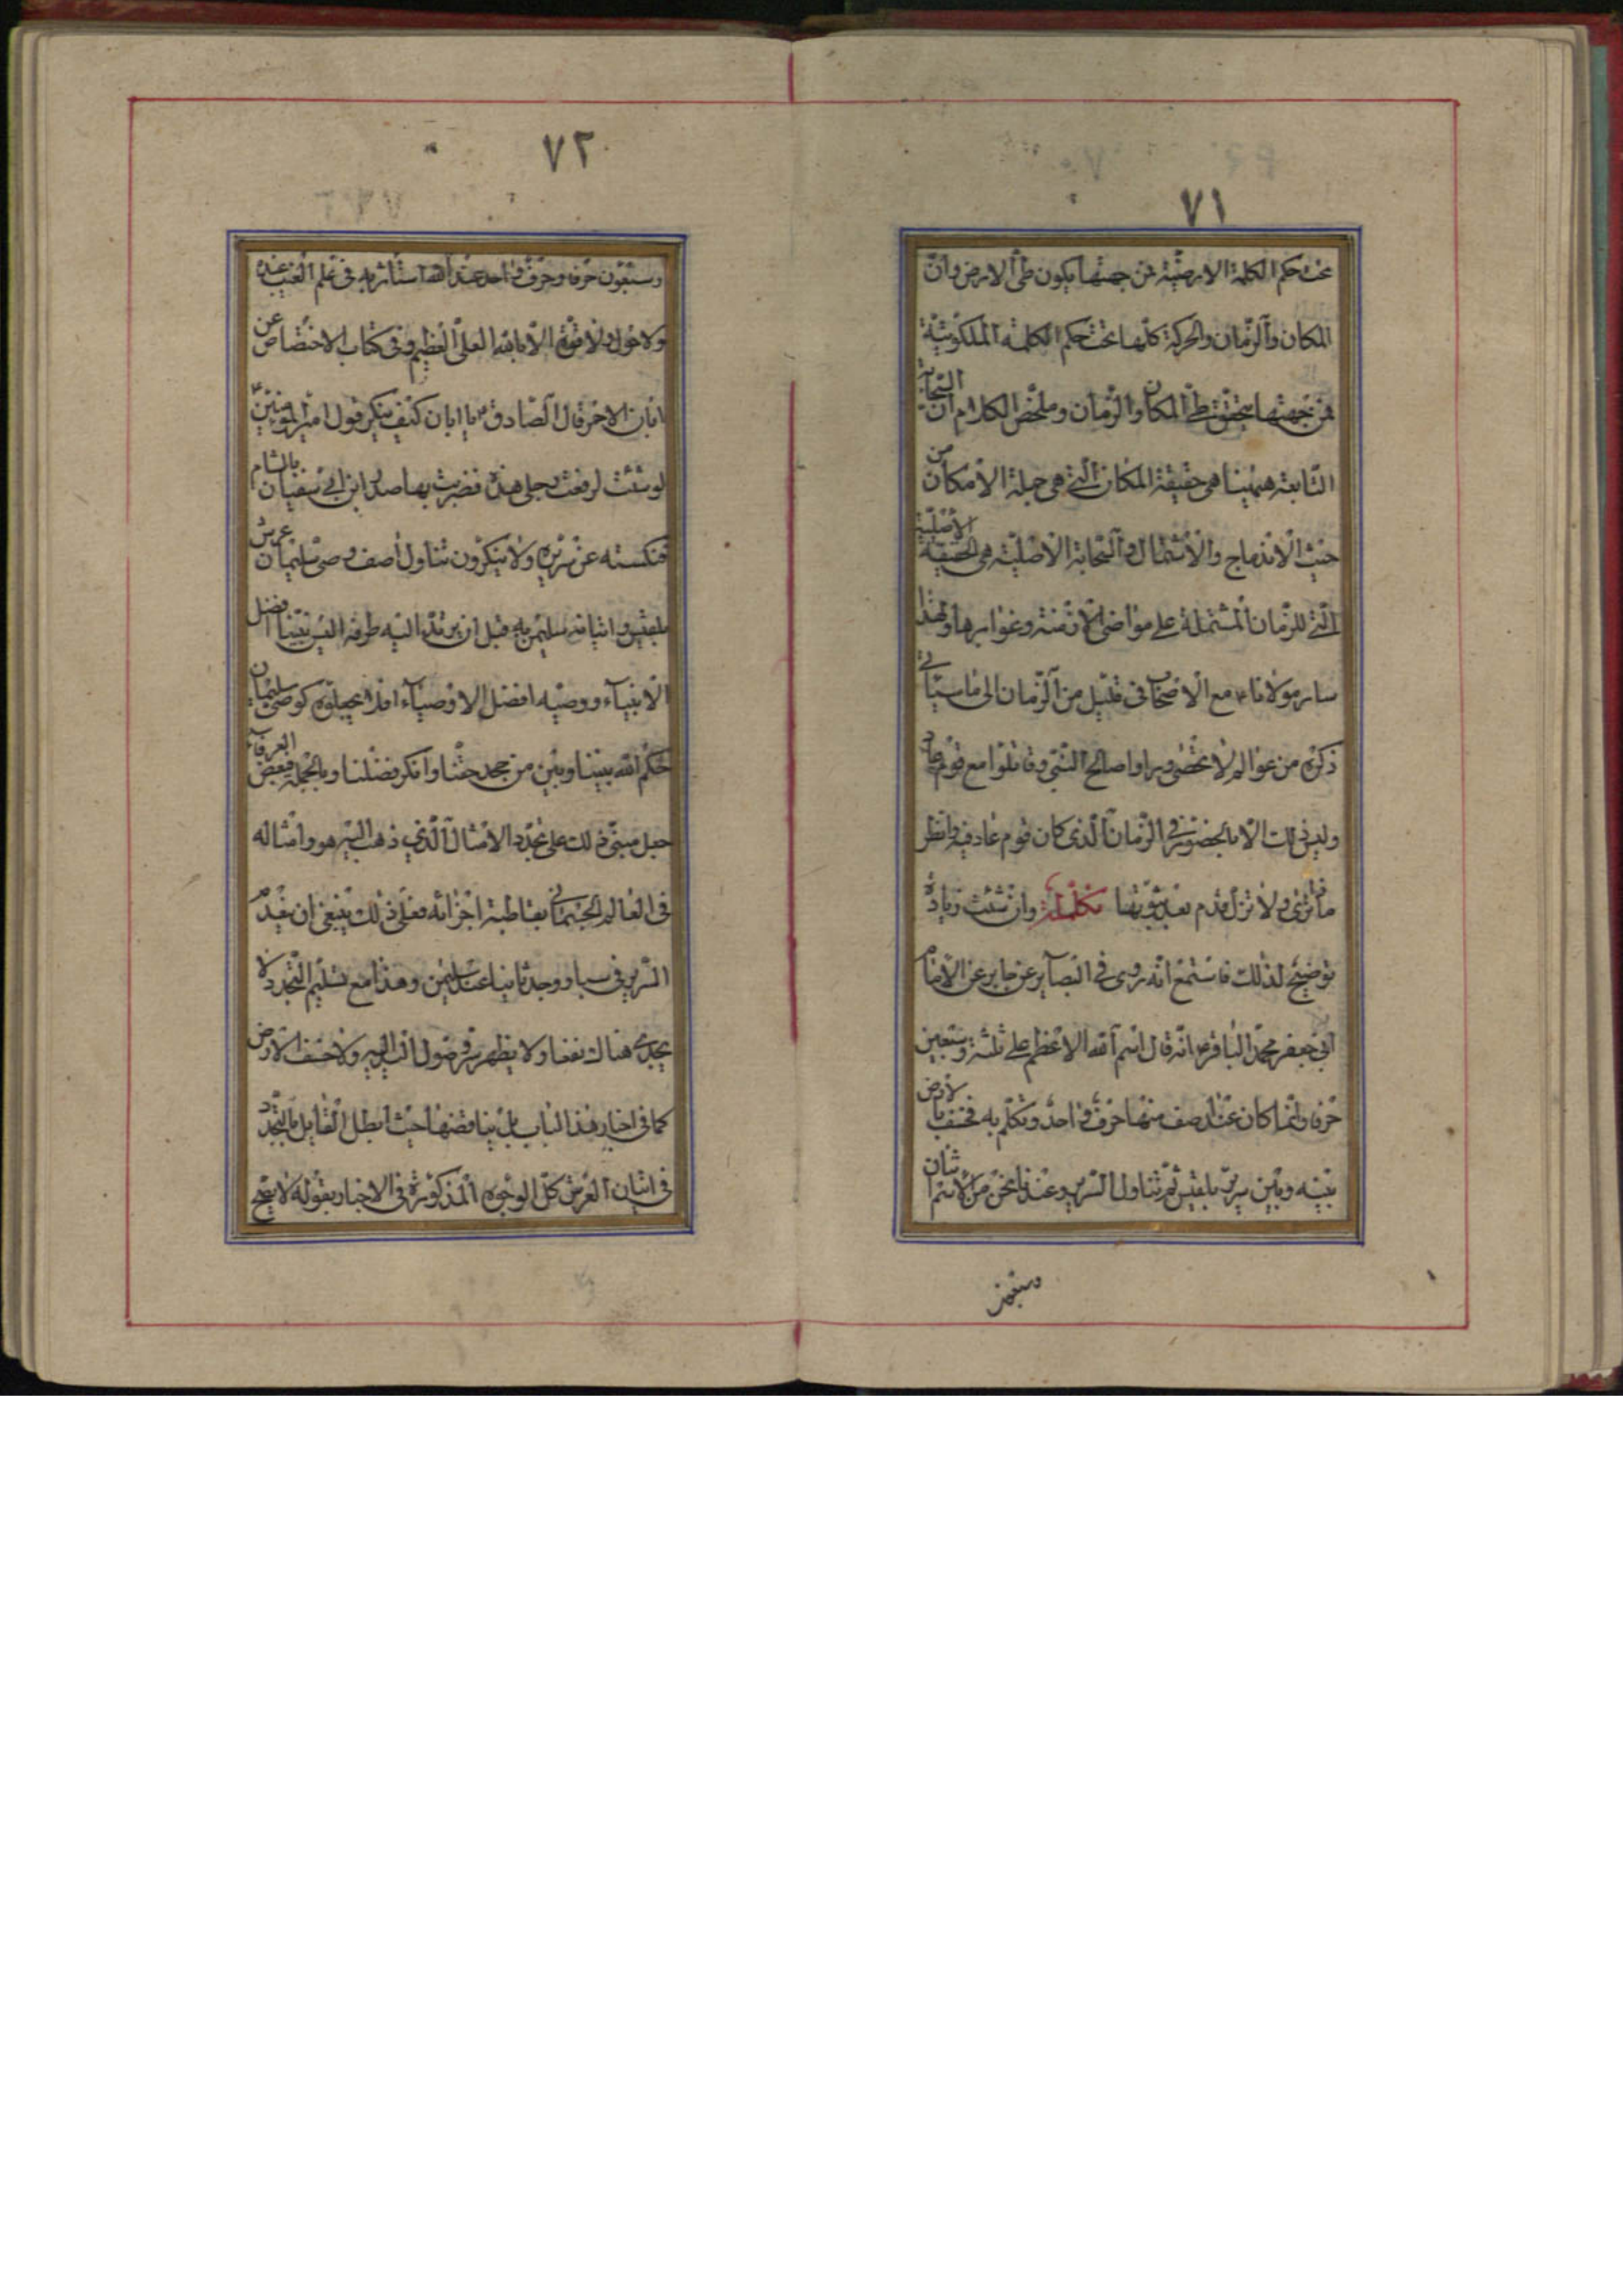 ٧١
تحت حكم الكلمة الارضيّة فمن جهتها يكون طىّ الارض وانّ
المكان والزّمان والحركة كلّها تحت حكم الكلمة الملكوتيّة
فمن جهتها يتحقّق طىّ المكان والزّمان وملخّص الكلام انّ السّحابة
التّابعة هيهنا هى حقيقة المكان الّتى هى جملة الامكان من
حيث الاندماج والاشتمال والسّحابة الاصليّة هى الحقيقة الاصليّة
الّتى للزّمان المشتملة على مواضى الازمنة وغوابرها ولهذا
سار مولانا ع مع الاصحاب فى قليل من الزّمان الى ما سيأتى
ذكره من عوالم لا تحصى وراوا صالح النّبى وقاتلوا مع قوم عاد
وليس ذلك الّا بالحضور فى الزّمان الّذى كان قوم عاد فيه فانظر
ماذا ترى ولا تزل قدم بعد ثبوتها تكملة وان شئت زيادة
توضيح لذلك فاستمع انّه روى فى البصاير عن جابر عن الامام
ابى جعفر محمّد الباقر ع انّه قال اسم الله الاعظم على ثلثة وسبعين
حرفا وانّما كان عند اصف منها حرف واحد وتكلّم به فخسف بالارض
بينه وبين سرير بلقيس ثمّ تناول السّرير وعندنا نحن من الاسم اثنان
وسبعون
٧٢
وسبعون حرفا وحرف واحد عند الله استأثر به فى علم الغيب عنده
ولا حول ولا قوّة الّا بالله العلىّ العظيم وفى كتاب الاختصاص عن
ابان الاحمر قال الصّادق ع يا ابان كيف ينكر قول امير المؤمنين
لو شئت لرفعت رجلى هذه فضربت بها صدر ابن ابى سفيان بالشام
فنكسته عن سريره ولا ينكرون تناول اصف وصى سليمان عرش
بلقيس واتيانه سليمن به قبل ان يرتدّ اليه طرفه اليس نبيّنا افضل
الانبياء ووصيّه افضل الاوصياء افلا يجعلوه كوصى سليمان
حكم الله بيننا وبين من جحد حقّنا وانكر فضلنا وبالجملة فبعض العرفاء
جعل مبنى ذلك على تجدّد الامثال الّذى ذهب اليه هو وامثاله
فى العالم الجسمانى بقاطبة اجزائه فعلى ذلك ينبغى ان يعدم
السّرير فى سبا ووجد ثانيا عند سليمن وهذا مع تسليم التّجدد لا
يجدى هناك نفعا ولا يظهر سرّ وصول اليد اليه ولا خسف الارض
كما فى اخبار هذا الباب بل يناقضها حيث ابطل القايل بالتّجدّد
فى اتيان العرش كلّ الوجوه المذكورة فى الاخبار بقوله لا يصحّ